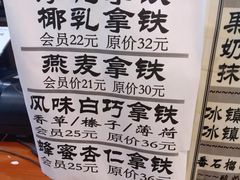 椰乳拿铁
会员22元 原价32元
燕麦拿铁
会员价21元 原价30元
风味白巧拿铁
香草/榛子/薄荷
会员25元 原价36元
蜂蜜杏仁拿铁
会员25元 原价36元
果
奶
抹
冰
冰
香石榴